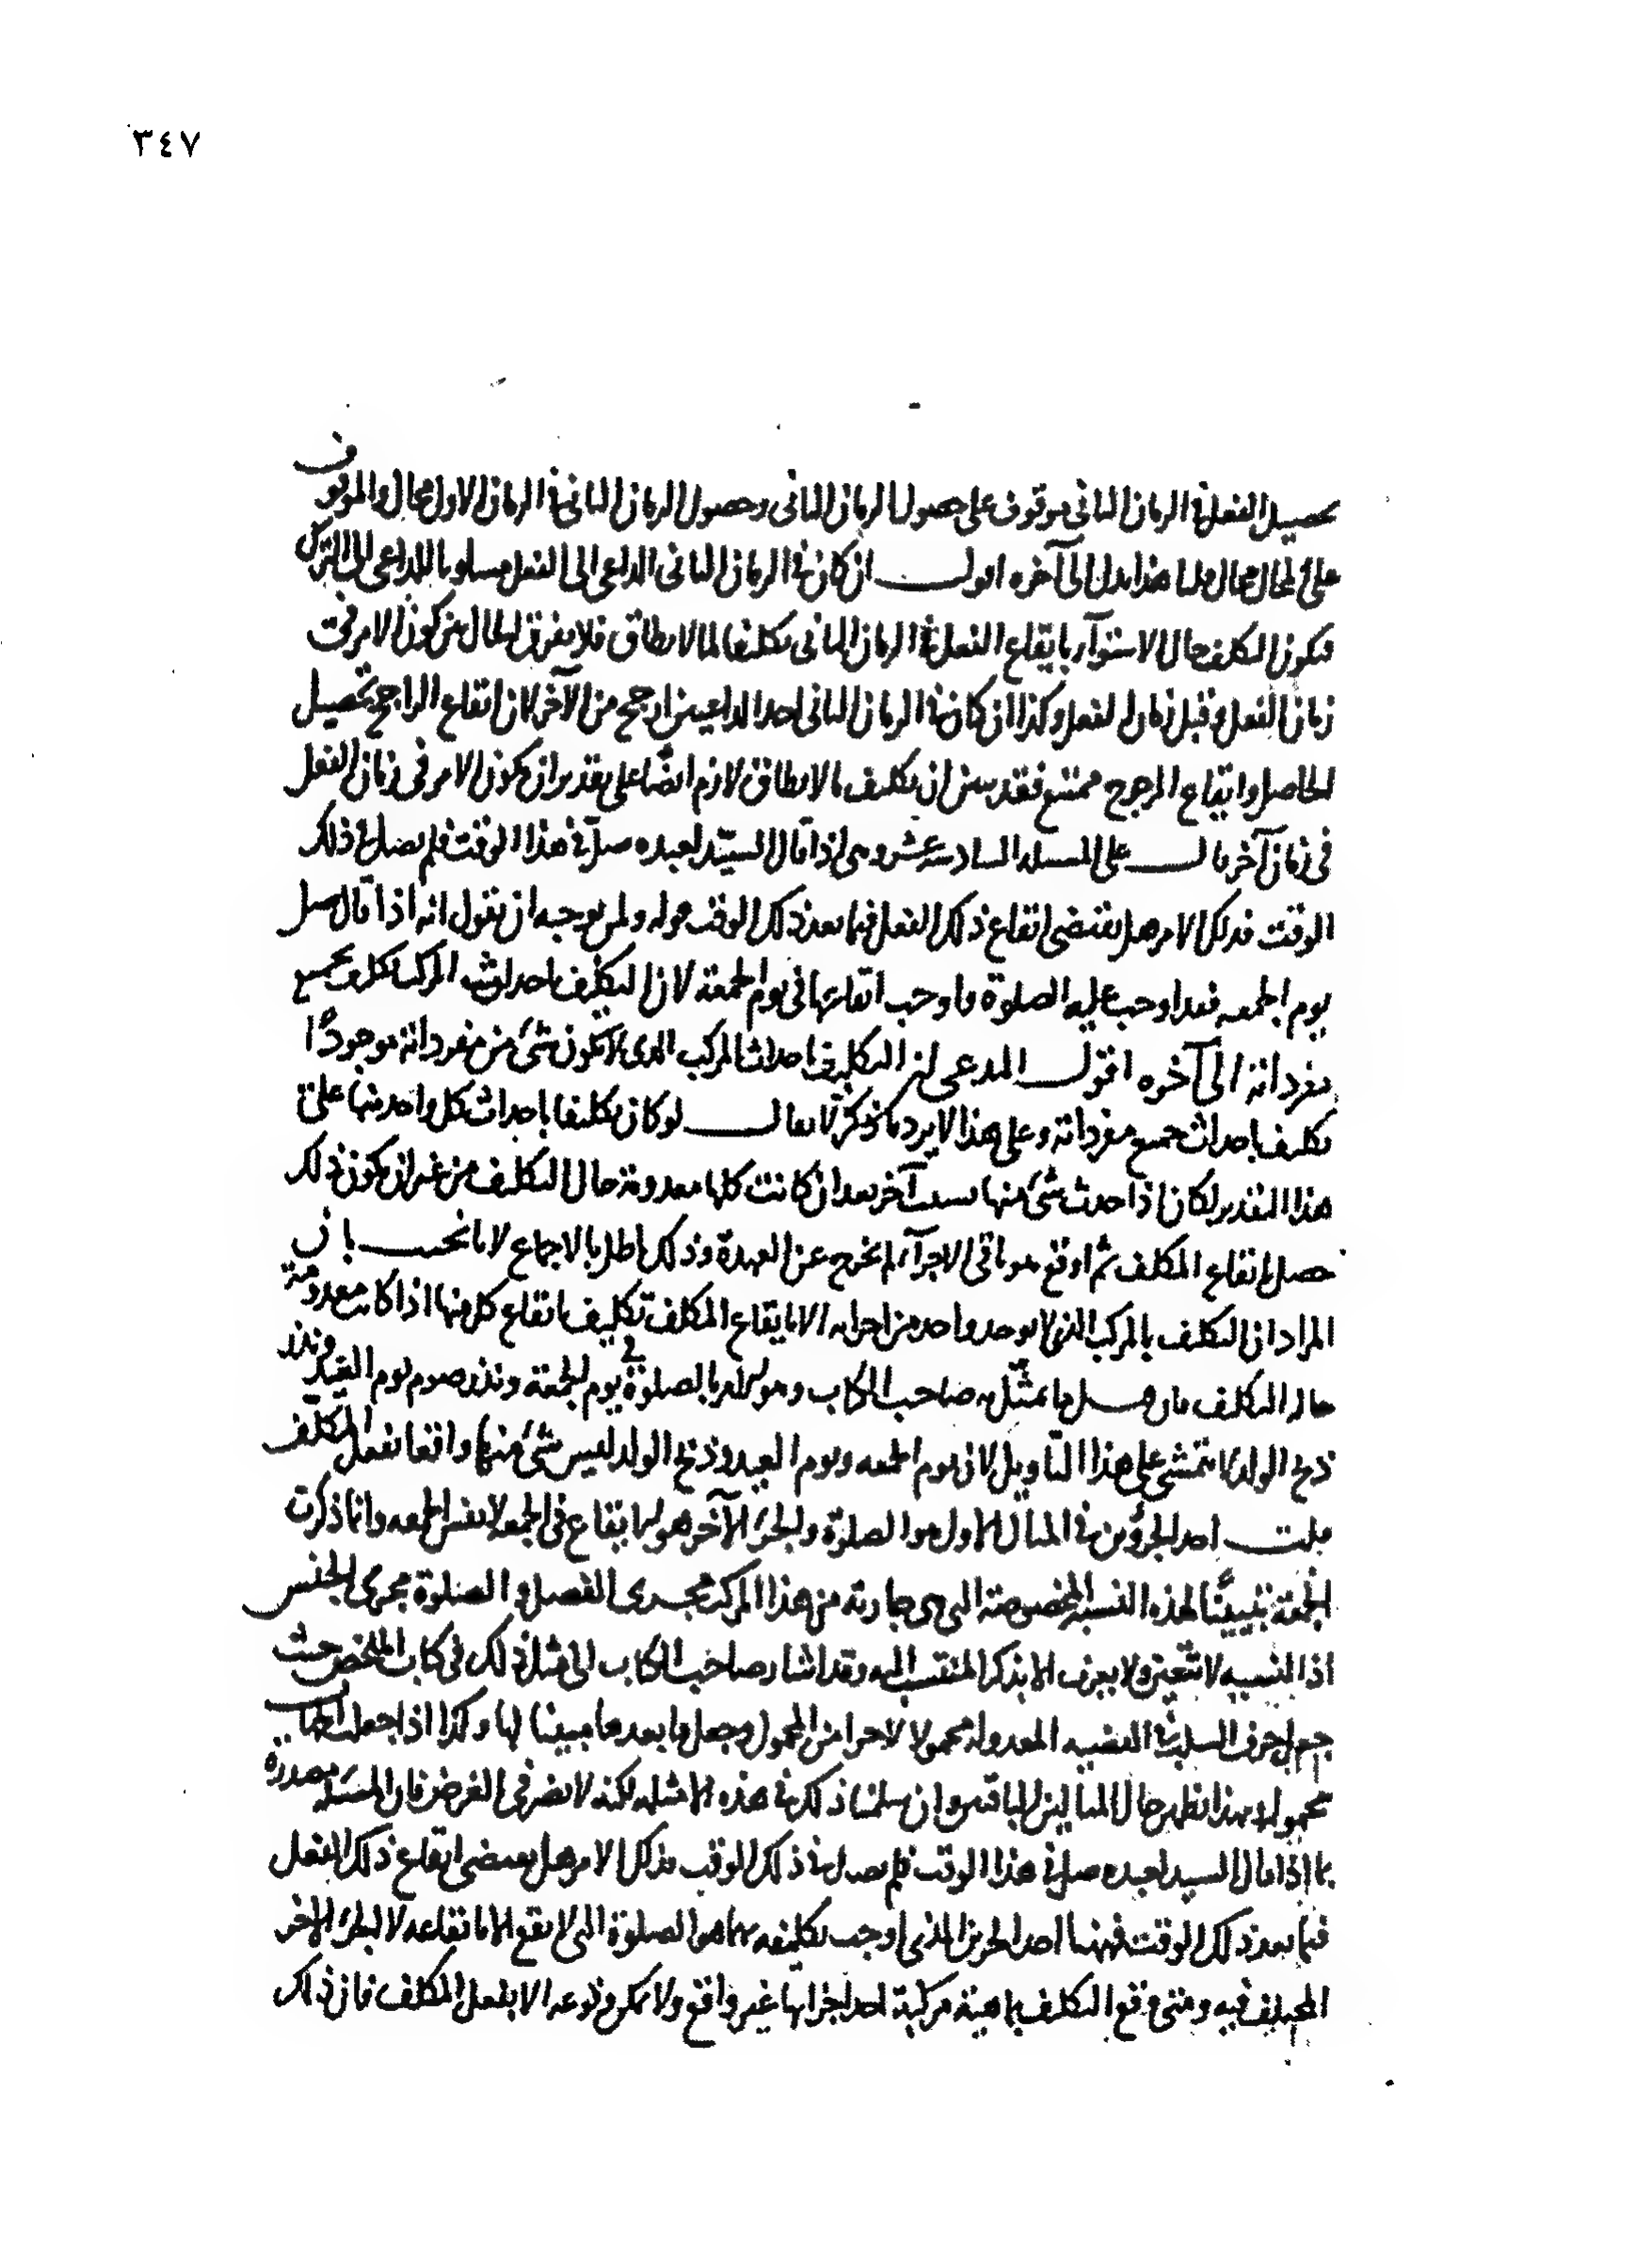 ٣٤٧
تحصيل الفعل فى الزمان الثانى موقوف على حصول الزمان الثانى وحصول الزمان الثانى فى الزمان الاول محال والموقوف
على المحال محال قلنا هذا يدل الى آخره اقول ان كان فى الزمان الثانى الداعى الى الفعل مساويا للداعى الى الترك
فيكون التكليف حال الاستوآء بايقاع الفعل فى الزمان الثانى تكليفا لما لا يطاق فلا يفرق الحال من كون الامر فى
زمان الفعل وقبل زمان الفعل وكذا ان كان فى الزمان الثانى احد الداعيين ارجح من الآخر لان ايقاع الراجح تحصيل
الحاصل وايقاع المرجوح ممتنع فقد بين ان تكليف ما لا يطاق لازم ايضًا على تقدير ان يكون الامر فى زمان الفعل
فى زمان آخر قال على المسئلة السادسة عشر وهى اذا قال السيّد لعبده صلّ فى هذا الوقت فلم يصل فى ذلك
الوقت فذلك الامر هل يقتضى ايقاع ذلك الفعل فيما بعد ذلك الوقت قوله ولمن يوجبه ان يقول انه اذا قال صل
يوم الجمعه فقد اوجب عليه الصلوة واوجب ايقاعها فى يوم الجمعة لان التكليف باحداث المركب تكليف بجميع
مفرداته الى آخره اقول المدعى ان التكليف باحداث المركب الذى لا يكون شىء من مفرداته موجودًا
تكليف باحداث جميع مفرداته وعلى هذا لا يرد ما ذكر لا يقال لو كان تكليفا باحداث كل واحد منها على
هذا التقدير لكان اذا حدث شىء منها بسبب آخر بعد ان كانت كلها معدومة حال التكليف من غير ان يكون ذلك
حصل بايقاع المكلف ثم اوقع هو باقى الاجزآء لم يخرج عن العهدة وذلك باطل بالاجماع لانا نجيب بان
المراد ان التكليف بالمركب الذى لا يوجد واحد من اجزايه الا بايقاع المكلف تكليف بايقاع كل منها اذا كانت معدومة
حالة التكليف فان قيل ما تمثّل به صاحب الكتاب وهو الامر بالصلوة فى يوم الجمعة ونذر صوم يوم العيد ونذر
ذبح الولد لا يتمشى على هذا التأويل لان يوم الجمعه ويوم العيد وذبح الولد ليس شىء منها واقعا بفعل المكلف
قلت احد الجزؤين فى المثال الاول هو الصلوة والجزء الآخر هو الايقاع فى الجمعه لا نفس الجمعه وانما ذكرت
الجمعة تبيينًا لهذه النسبة المخصوصة التى هى جارية من هذا المركب مجرى الفصل والصلوة مجرى الجنس
اذ النسبه لا تتعين ولا يعرف الا بذكر المنتسب اليه وقد اشار صاحب الكتاب الى مثل ذلك فى كتاب الملخص حيث
جعل حرف السلب فى القضيه المعدوله محمولا لا جزا من المحمول وجعل ما بعدها مبينا لها وكذا اذا جعلت
محموله وبهذا يظهر حال المثالين الباقيين وان سلمنا ذلك فى هذه الامثله لكنه لا يضر فى الغرض فان المسئلة مصدرة
بما اذا قال السيد لعبده صل فى هذا الوقت فلم يصل فى ذلك الوقت فذلك الامر هل يقتضى ايقاع ذلك الفعل
فيما بعد ذلك الوقت فههنا احد الجزئين الذى اوجب تكليفه بهما هو الصلوة التى لا يقع الا بايقاعه لا الجزء الاخر
المختلف فيه ومتى وقع التكليف بماهية مركبة احد اجزايها غير واقع ولا يمكن وقوعه الا بفعل المكلف فان ذلك